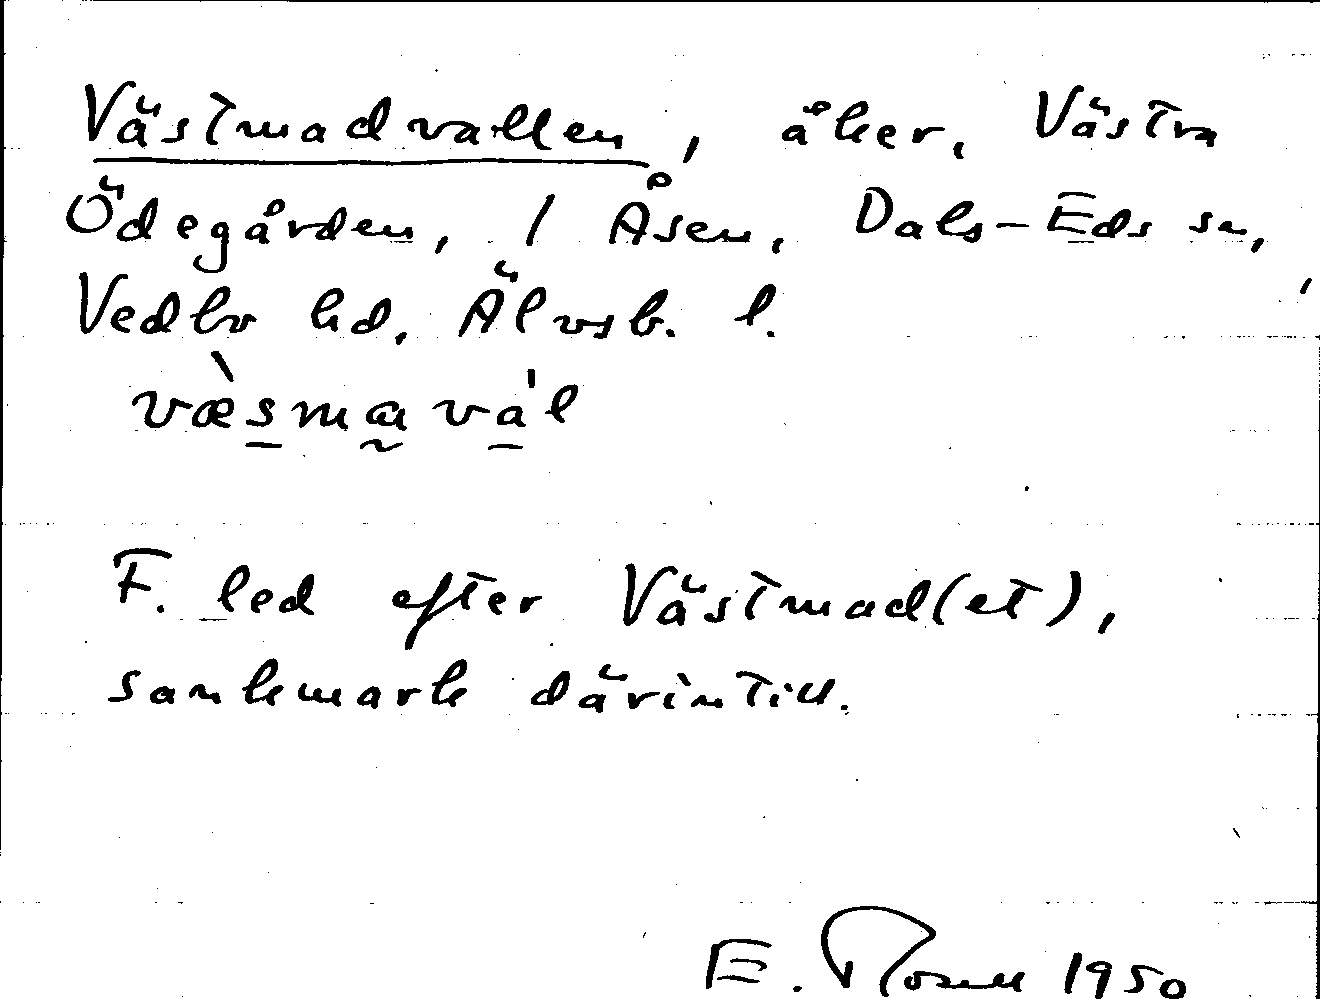 Västmadvallen, åker, Västra
Ödegården, / Åsen, Dals-Eds sn,
Vedbo hd, Älvsb. l.
væ̀smavál
F. led efter Västmad(et),
sankmark därintill.
E. Rosell 1950